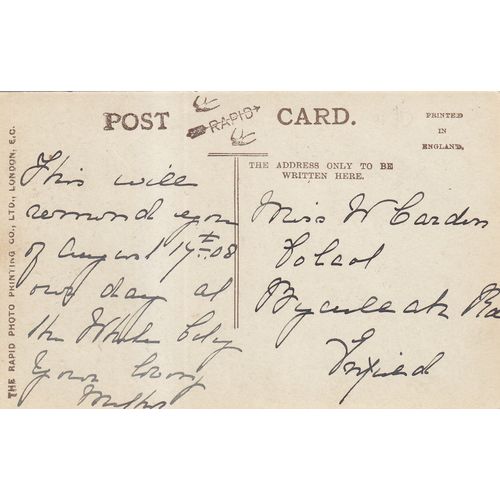 POST CARD.
RAPID
PRINTED
IN
ENGLAND.
THE ADDRESS ONLY TO BE
WRITTEN HERE.
THE RAPID PHOTO PRINTING CO., LTD., LONDON, E.C.
This will
remind you
of August 17th 08
our day at
the White City
Your loving
Miss W Carden
Bycullah Rd
Enfield